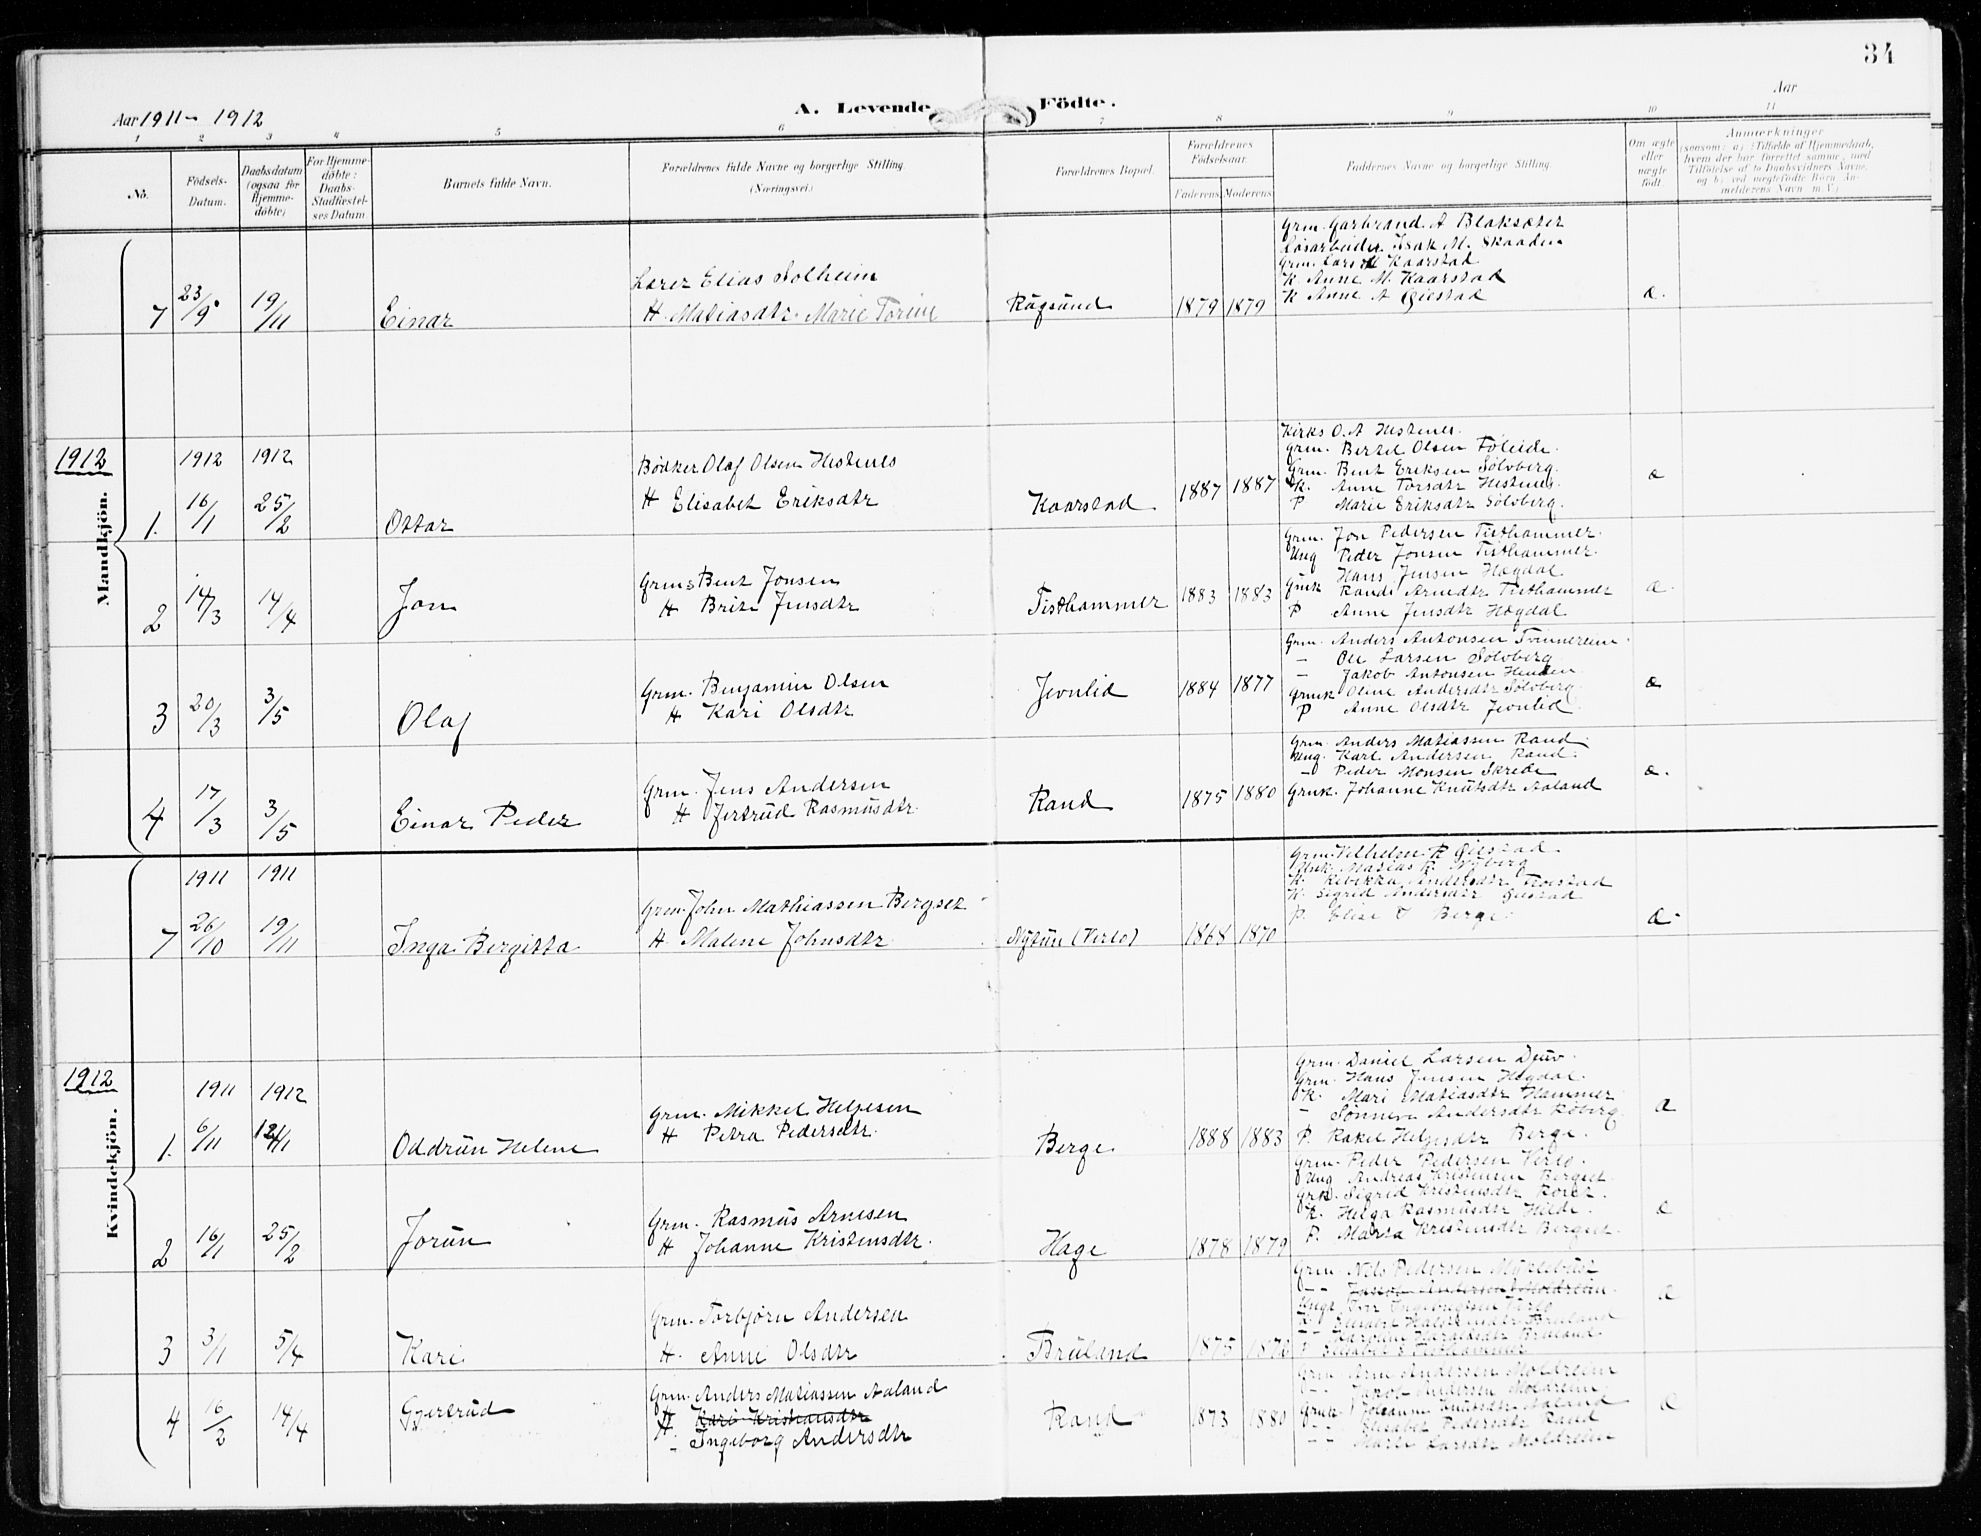 34
Aar 1911 - 1912
A. Levende Födte.
Aar
1 2 3 4 5 6 7 8 9 10 11
No.
Födsels-Datum.
Daabsdatum (ogsaa for Hjemmedöbte)
For Hjemmedöbte: Daabs-Stadfæstelses Datum
Barnets fulde Navn.
Forældrenes fulde Navne og borgerlige Stilling. (Næringsvei.)
Forældrenes Bopæl.
Forældrenes Födselsaar.
Faderens Moderens
Faddernes Navne og borgerlige Stilling.
Om ægte eller uægte födt
Anmærkninger
Mandkjön.
7 23/9 19/11 Einar
Lærer Elias Solheim
H. Matiasdtr. Marie Torine
Rugsund 1879 1879
Grm. Garbrand A Blaksæter
Løsarbeider Isak M. Skaaden
Grm. Lars M Kaarstad
K Anne M. Kaarstad
K Anne A Øiestad
æ.
1912
1912 1912
1. 16/1 25/2 Ottar
Bödker Olaf Olsen Hestenes
H Elisabet Eriksdtr
Kaarstad 1887 1887
Kirks O. A Hestenes.
Grm. Bertel Olsen Föleide.
Grm. Bent Eriksen Sölvberg.
K. Anne Torsdtr Hestenes.
P Marie Eriksdtr Sölvberg.
æ
2 14/3 14/4 Jon
Grm. Bent Jonsen
H Brite Jensdtr
Tisthammer 1883 1883
Grm. Jon Pedersen Tisthammer.
Ung Peder Jonsen Tisthammer.
Hans Jensen Hægdal
Gmk Randi Arnedtr Tisthammer
P Anne Jensdtr Hægdal
æ.
3 20/3 3/5 Olaf
Grm. Benjamin Olsen
H Kari Olsdtr
Jevnlid 1884 1877
Grm. Anders Antonsen Tvinnereim.
- Ole Larsen Sölvberg
- Jakob Antonsen
Grmk Oline Andersdtr Sölvberg
P Anne Olsdtr Jevnlid
æ
4 17/3 3/5 Einar Peder
Grm. Jens Andersen
H Jertrud Rasmusdtr
Rand 1875 1880
Grm. Anders Matiassen Rand.
Ung. Karl Andersen Rand.
- Peder Monsen Skrede
Grmk. Johanne Knutsdtr Aaland
æ.
Kvindekjön.
1911 1911
7 26/10 19/11 Inga Bergitta
Grm. John Mathiassen Bergset
H. Malene Johnsdtr.
Nytun (Verlo) 1868 1870
Grm. Vilhelm R Øiestad.
Matias R. Nyberg
K. Rebekka Andersdtr
K. Sigrid Andersdtr Øiestad
P. Elise T Berge.
æ.
1912
1911 1912
1. 6/11 Oddrun Helene
Grm. Mikkel Helgesen
H Petra Pedersdtr.
Berge 1888 1883
Grm. Daniel Larsen Djuv.
Grm. Hans Jensen Hægdal.
K. Mari Matiasdtr Hammer
- Sönneva Andersdtr
P. Rakel Helgesdtr Berge.
æ
2 16/1 25/2 Jorun
Grm. Rasmus Arnesen
H Johanne Kristensdtr.
Hage 1878 1879
Grm. Peder Pedersen Verlo.
Ung Andreas Kristensen Bergset.
Grk. Sigrid Kristensdtr
K. Helga Rasmusdtr Hilde.
P. Marta Kristensdtr Bergset.
æ
3 3/1 5/4 Kari
Grm. Torbjörn Andersen
H. Anne Olsdtr
Bruland 1875 1876
Grm. Nils Pedersen Myklebust
Andersen Moldreim
æ
4 16/2 14/4 Gjertrud
Grm. Anders Matiassen Aaland
H Kari Kristiansdtr
H. - Ingeborg Andersdtr
Rand 1873 1880
Grm. Arne Andersen Moldreim
- - Jakob Andersen Moldreim
Grmk. Johanne Knutsdtr Aaland
- - Elisabet Pedersdtr Rand
- - Marte Larsdtr Moldreim
æ